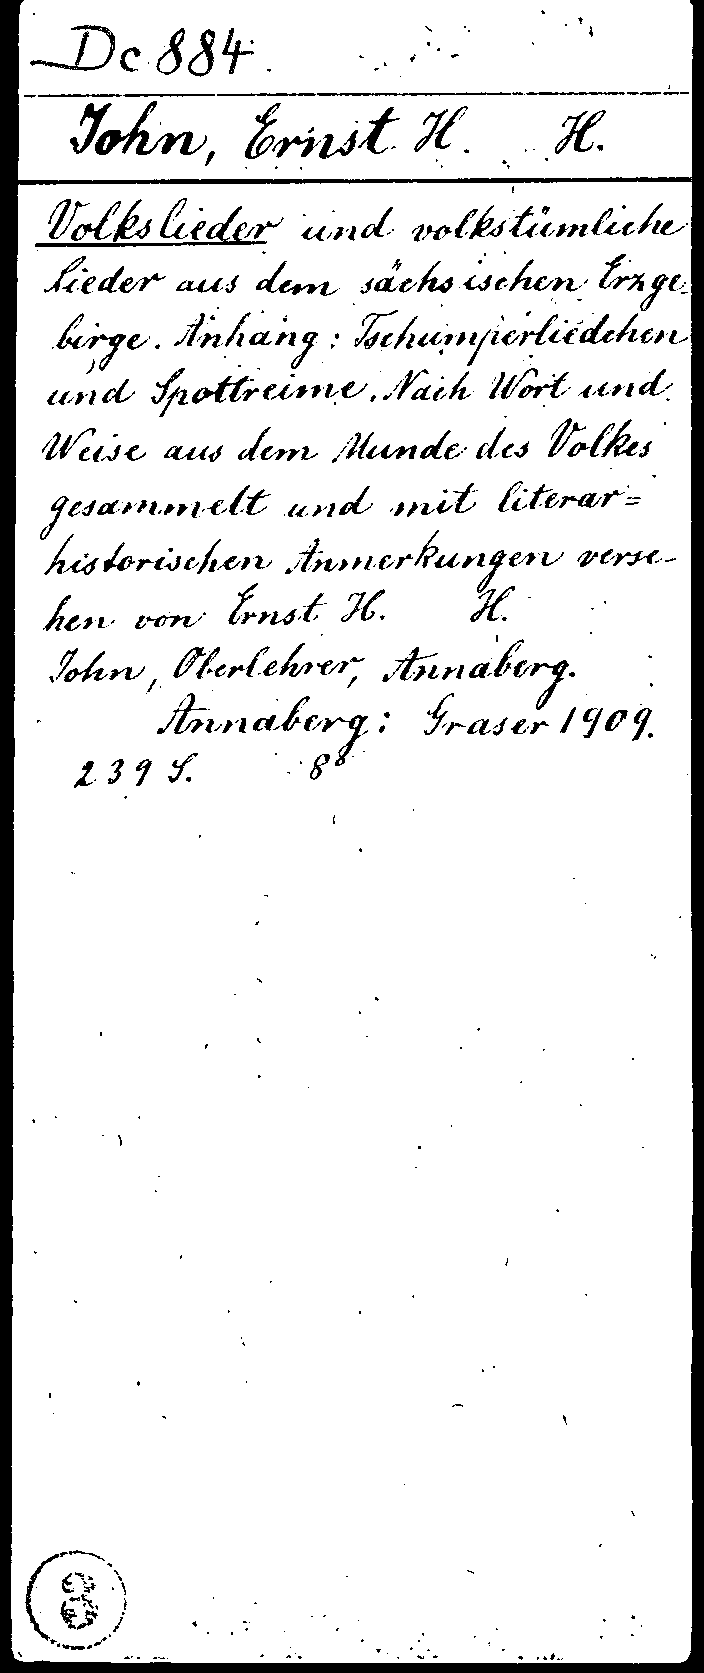 Dc 884
John, Ernst H. H.
Volkslieder und volkstümliche
Lieder aus dem sächsischen Erzge-
birge. Anhang: Tschumperliedchen
und Spottreime. Nach Wort und
Weise aus dem Munde des Volkes
gesammelt und mit literar=
historischen Anmerkungen verse-
hen von Ernst H. H.
John, Oberlehrer, Annaberg.
Annaberg: Graser 1909.
239 S. 8°
8